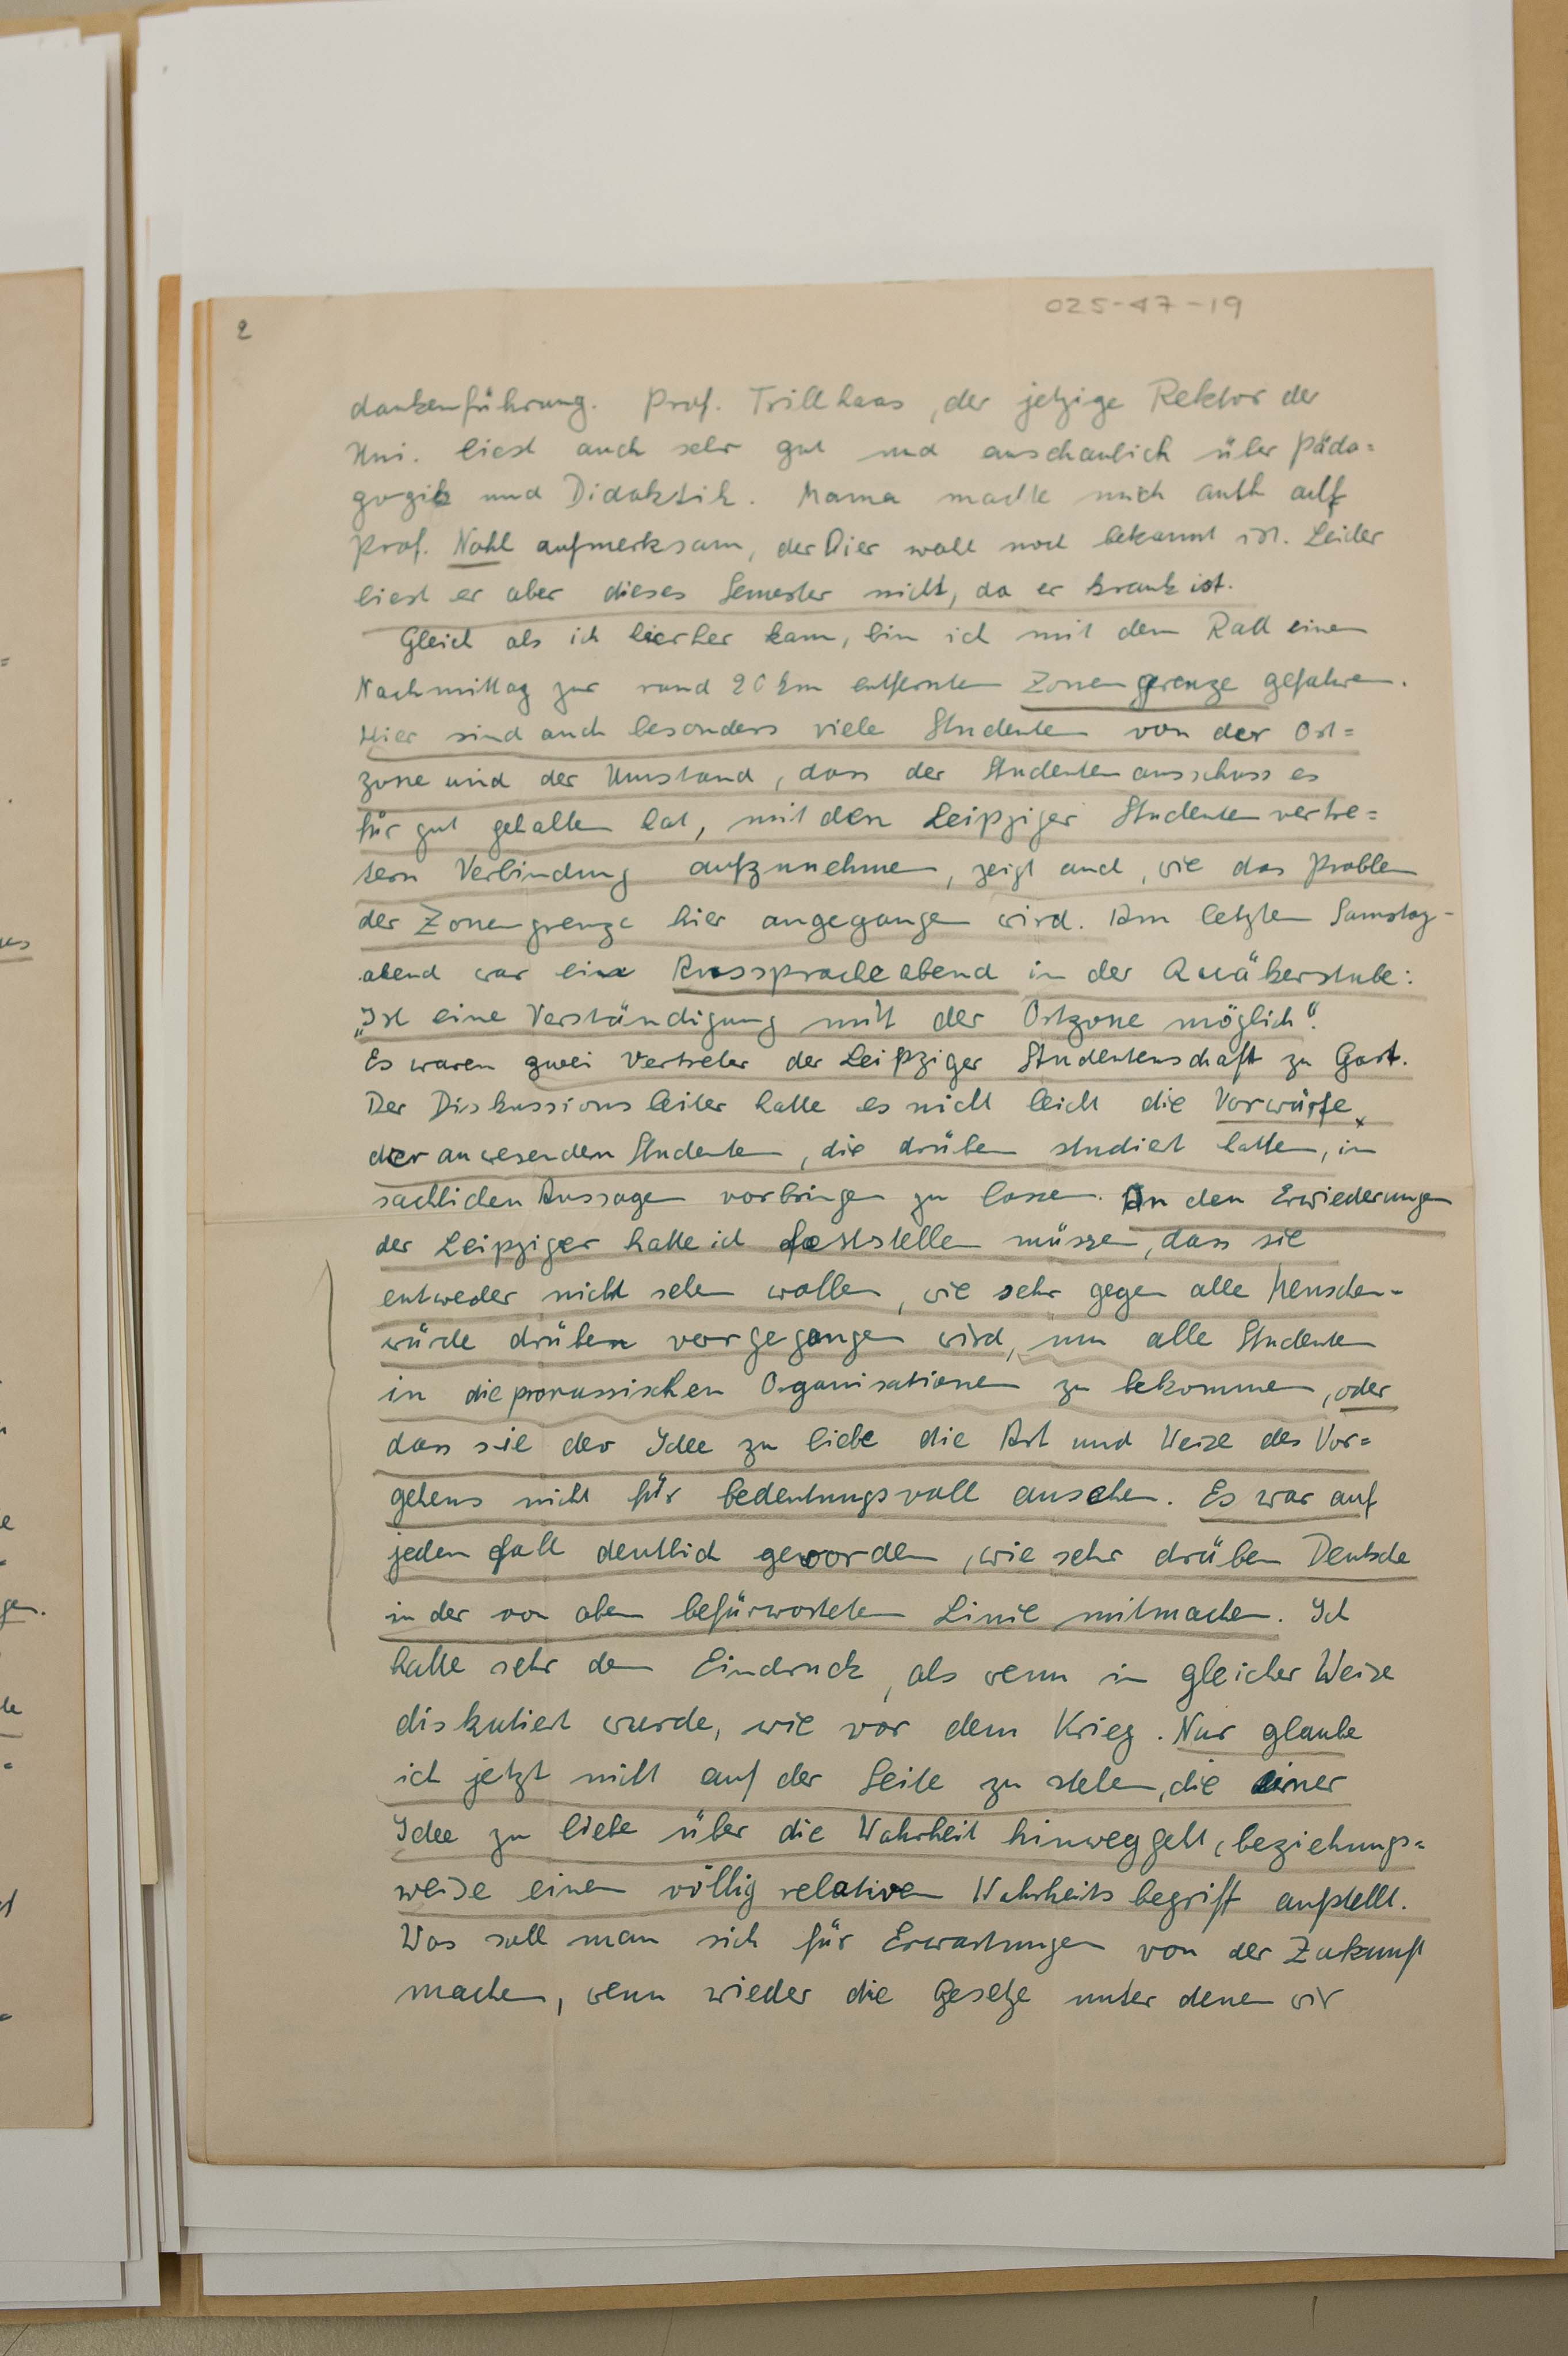 025-47-19
2
dankenführung. Prof. Trillhaas, der jetzige Rektor der
Uni. liest auch sehr gut und anschaulich über Päda=
gogik und Didaktik. Mama machte mich auch auf
Prof. Nohl aufmerksam, der Dier wohl noch bekannt ist. Leider
liest er aber dieses Semester nicht, da er krank ist.
Gleich als ich hierher kam, bin ich mit dem Rad einen
Nachmittag zur rund 20 km entfernten Zonengrenze gefahren.
Hier sind auch besonders viele Studenten von der Ost=
zone und der Umstand, dass der Studentenausschuss es
für gut gehalten hat, mit den Leipziger Studentenvertre=
tern Verbindung aufzunehmen, zeigt auch, wie das Problem
der Zonengrenze hier angegangen wird. Am letzten Samstag-
abend war ein Ausspracheabend in der Quäkerstube:
„Ist eine Verständigung mit der Ostzone möglich“.
Es waren zwei Vertreter der Leipziger Studentenschaft zu Gast.
Der Diskussionsleiter hatte es nicht leicht die Vorwürfe
der anwesenden Studenten, die drüben studiert hatten, in
sachlichen Aussagen vorbringen zu lassen. An den Erwiederungen
der Leipziger hatte ich feststellen müssen, dass sie
entweder nicht sehen wollen, wie sehr gegen alle Menschen-
würde drüben vorgegangen wird, um alle Studenten
in die prorussischen Organisationen zu bekommen, oder
dass sie der Idee zu liebe die Art und Weise des Vor=
gehens nicht für bedeutungsvoll ansehen. Es war auf
jeden Fall deutlich geworden, wie sehr drüben Deutsche
in der von oben befürworteten Linie mitmachen. Ich
hatte sehr den Eindruck, als wenn in gleicher Weise
diskutiert wurde, wie vor dem Krieg. Nur glaube
ich jetzt nicht auf der Seite zu stehen, die einer
Idee zu liebe über die Wahrheit hinweggeht, beziehungs=
weise einen völlig relativen Wahrheitsbegriff aufstellt.
Was soll man sich für Erwartungen von der Zukunft
machen, wenn wieder die Gesetze unter denen wir